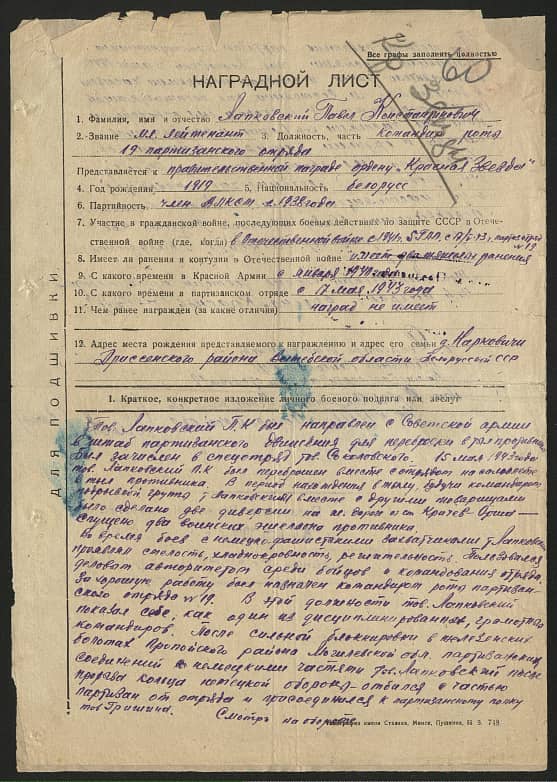 Все графы заполнять полностью
60
НАГРАДНОЙ ЛИСТ
1. Фамилия, имя и отчество Лапковский Павел Константинович
2. Звание мл. лейтенант 3. Должность, часть командир роты
19 партизанского отряда
Представляется к правительственной награде ордену „Красная Звезда"
4. Год рождения 1919 5. Национальность белорусс
6. Партийность член ВЛКСМ с 1938 года
7. Участие в гражданской войне, последующих боевых действиях по защите СССР в Отече-
ственной войне (где, когда) в Отечественной войне с 1941г.
8. Имеет ли ранения и контузии в Отечественной войне имеет два ранения
9. С какого времени в Красной Армии с января 1940
10. С какого времени в партизанском отряде с 17 мая 1943 года
11. Чем ранее награжден (за какие отличия) наград не имеет
12. Адрес места рождения представляемого к награждению и адрес его семьи д. Марковичи
Дриссенского района Витебской области Белрусской ССР
ДЛЯ ПОДШИВКИ
I. Краткое, конкретное изложение личного боевого подвига или заслуг
Тов. Лапковский П.К был направлен с Советской армии
в штаб партизанского движения для переброски в тыл противника
был зачислен в спецотряд тов. Соколовского. 15 мая 1943 года
тов. Лапковский П.К был переброшен вместе с отрядом на самолете
в тыл противника. В период нахождения в тылу, будучи командиром
подрывной группы т. Лапковским вместе с другими товарищами
было сделано две диверсии на ж. дороге Кричев-Орша —
спущено два воинских эшелона противника.
Во время боев с немецко-фашистскими захватчиками т. Лапковский
проявлял смелость, хладнокровность, решительность. Пользовался
деловым авторитетом среди бойцов и командования отряда.
За хорошую работу был назначен командиром роты партизан-
ского отряда №19. В этой должности тов. Лапковский
показал себя, как один из дисциплинированных, грамотных
командиров. После сильной блокировки в
болотах Пропойского района Могилевской обл. партизанских
соединений немецкими частями тов. Лапковский после
прорыва кольца немецкой обороны отбился с частью
партизан от отряда и присоединился к партизанскому полку
тов Гришина. Смотр на обороте
Типография имени Сталина, Минск, Пушкина, 55 З. 748